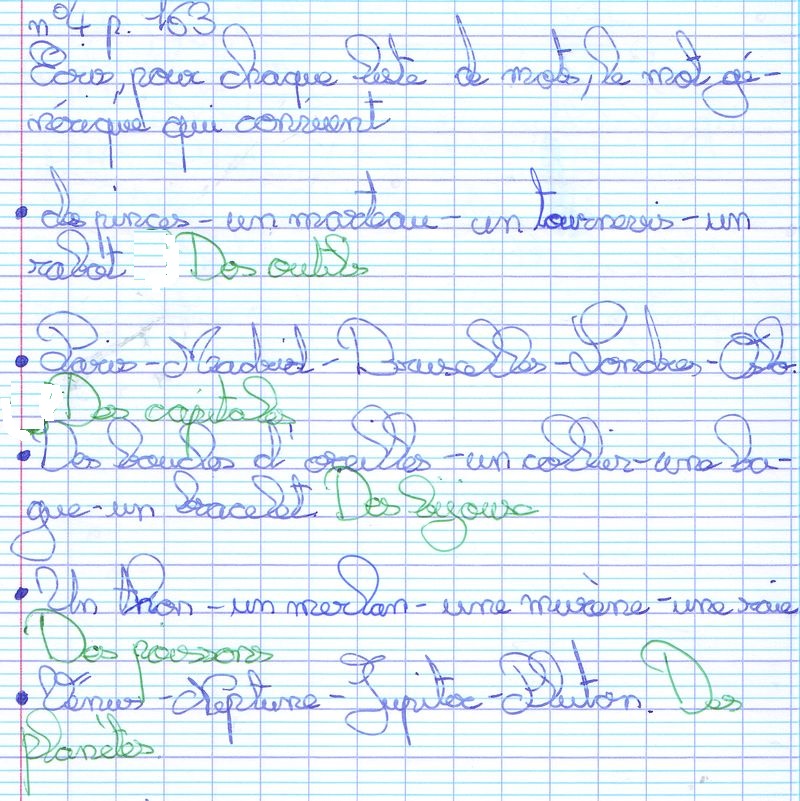 n°4 p. 163
Écris, pour chaque liste de mots, le mot gé-
nérique qui convient
• des pinces - un marteau - un tournevis - un
rabot Des outils
• Paris - Madrid - Bruxelles - Londres - Oslo.
Des capitales
• Des boucles d'oreilles - un collier - une ba-
gue - un bracelet. Des bijoux
• Un thon - un merlan - une murène - une raie
Des poissons
• Vénus - Neptune - Jupiter - Pluton. Des
planètes.